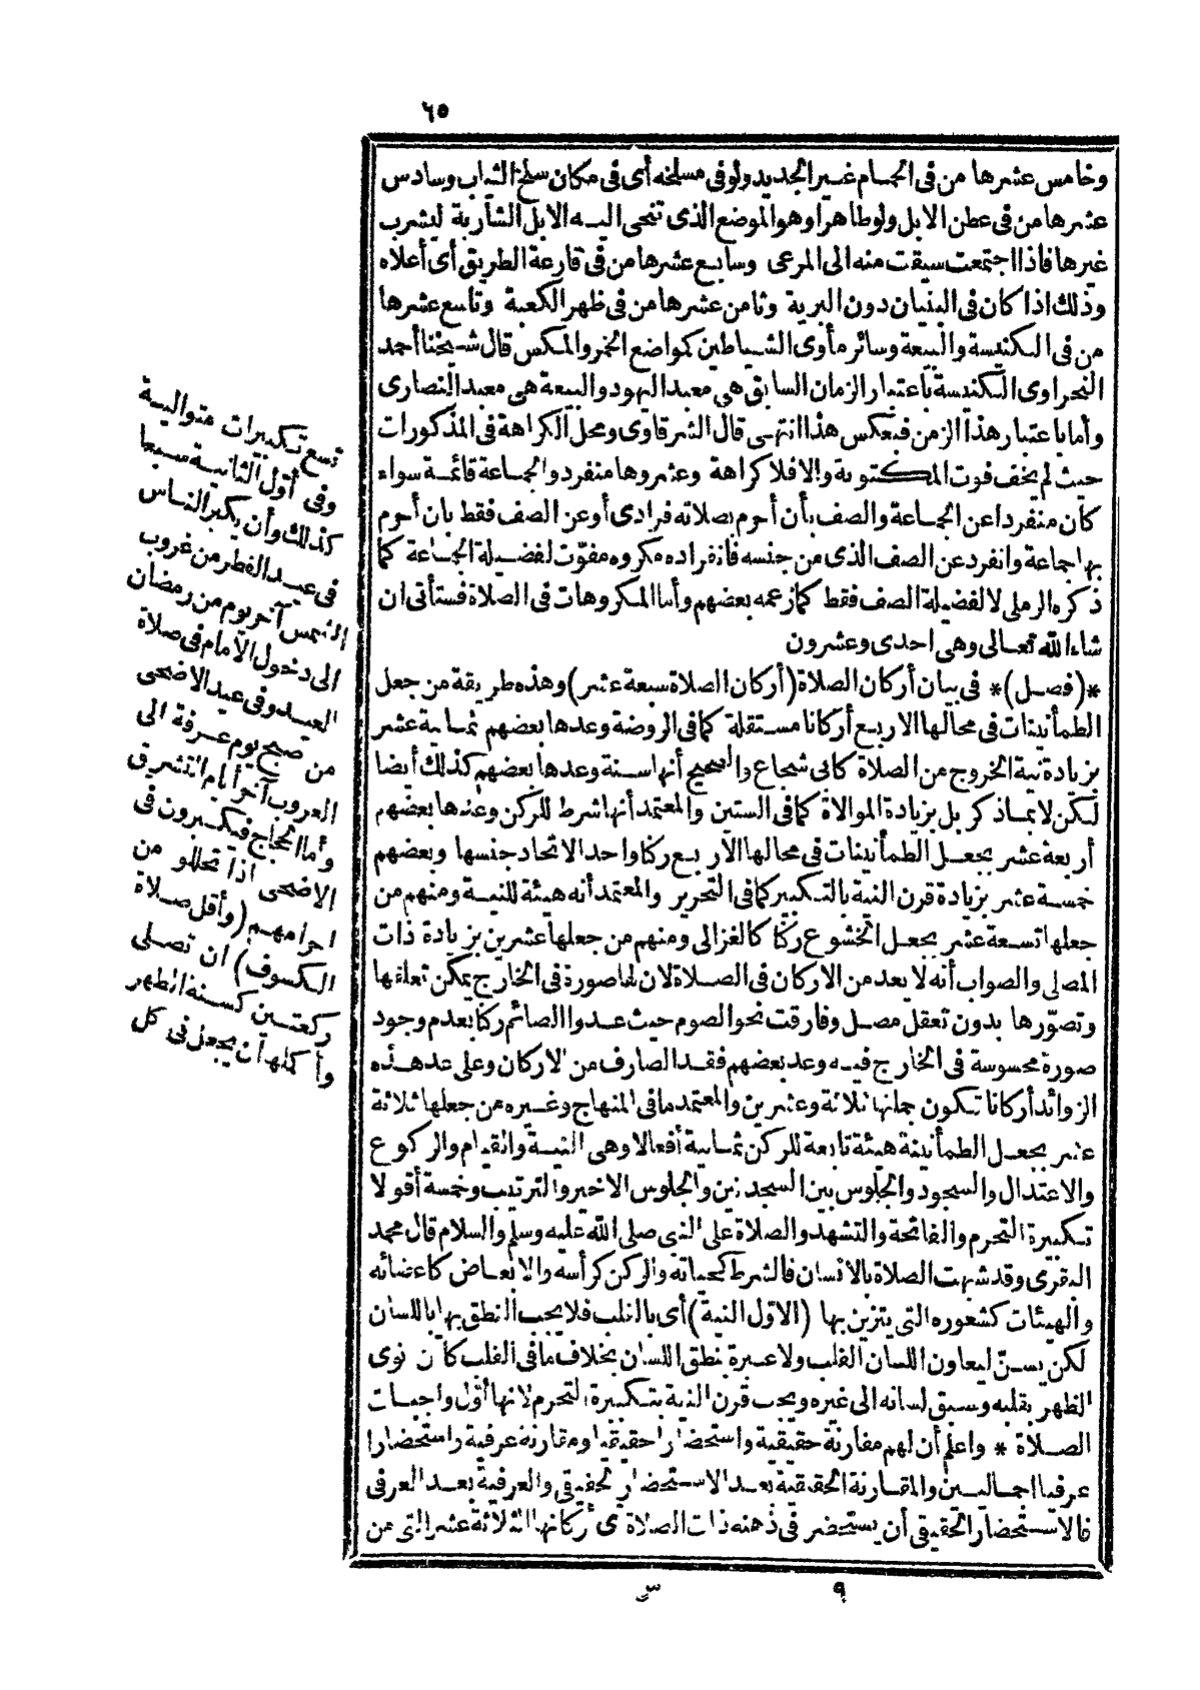 ٦٥
وخامس عشرها من فى الحمام غير الجديد ولو فى مسلخه أى فى مكان سلخ الثياب وسادس
عشرها من فى عطن الابل ولو طاهرا وهو الموضع الذى تنحى اليه الابل الشاربة ليشرب
غيرها فاذا اجتمعت سيقت منه الى المرعى وسابع عشرها من فى قارعة الطريق أى أعلاه
وذلك اذا كان فى البنيان دون البرية وثامن عشرها من فى ظهر الكعبة وتاسع عشرها
من فى الكنيسة والبيعة وسائر مأوى الشياطين كمواضع الخمر والمكس قال شيخنا أحمد
النحراوى الكنيسة باعتبار الزمان السابق هى معبد اليهود والبيعة هى معبد النصارى
وأما باعتبار هذا الزمن فبعكس هذا انتهى قال الشرقاوى ومحل الكراهة فى المذكورات
حيث لم يخف فوت المكتوبة والا فلا كراهة وعشروها منفرد والجماعة قائمة سواء
كان منفردا عن الجماعة والصف بأن أحرم بصلاته فرادى أو عن الصف فقط بان أحرم
بها جماعة وانفرد عن الصف الذى من جنسه فانفراده مكروه مفوّت لفضيلة الجماعة كما
ذكره الرملى لا لفضيلة الصف فقط كما زعمه بعضهم وأما المكروهات فى الصلاة فستأتى ان
شاء الله تعالى وهى احدى وعشرون
*(فصل)* فى بيان أركان الصلاة (أركان الصلاة سبعة عشر) وهذه طريقة من جعل
الطمأنينات فى محالها الاربع أركانا مستقلة كما فى الروضة وعدها بعضهم ثمانية عشر
بزيادة نية الخروج من الصلاة كابى شجاع والصحيح أنها سنة وعدها بعضهم كذلك أيضا
لكن لا بما ذكر بل بزيادة الموالاة كما فى الستين والمعتمد أنها شرط للركن وعدها بعضهم
أربعة عشر بجعل الطمأنينات فى محالها الأربع ركنا واحدا لاتحاد جنسها وبعضهم
خمسة عشر بزيادة قرن النية بالتكبير كما فى التحرير والمعتمد أنه هيئة للنية ومنهم من
جعلها تسعة عشر بجعل الخشوع ركنا كالغزالى ومنهم من جعلها عشرين بزيادة ذات
المصلى والصواب أنه لا يعد من الاركان فى الصلاة لان لها صورة فى الخارج يمكن تعلقها
وتصوّرها بدون تعقل مصل وفارقت نحو الصوم حيث عدوا الصائم ركنا بعدم وجود
صورة محسوسة فى الخارج فيه وعد بعضهم فقد الصارف من الاركان وعلى عد هذه
الزوائد أركانا تكون جملتها ثلاثة وعشرين والمعتمد ما فى المنهاج وغيره من جعلها ثلاثة
عشر بجعل الطمأنينة هيئة تابعة للركن ثمانية أفعالا وهى النية والقيام والركوع
والاعتدال والسجود والجلوس بين السجدتين والجلوس الاخير والترتيب وخمسة أقوالا
تكبيرة التحرم والفاتحة والتشهد والصلاة على النبى صلى الله عليه وسلم والسلام قال محمد
البقرى وقد شبهت الصلاة بالانسان فالشرط كحياته والركن كرأسه والابعاض كاعضائه
والهيئات كشعوره التى يتزين بها (الاوّل النية) أى بالقلب فلا يجب النطق بها باللسان
لكن يسنّ ليعاون اللسان القلب ولا عبرة بنطق اللسان بخلاف ما فى القلب كأن نوى
الظهر بقلبه وسبق لسانه الى غيره ويجب قرن النية بتكبيرة التحرم لانها أوّل واجبات
الصلاة * واعلم أن لهم مقارنة حقيقية واستحضارا حقيقيا ومقارنة عرفية واستحضارا
عرفيا اجماليين والمقارنة الحقيقية بعد الاستحضار الحقيقى والعرفية بعد العرفى
فالاستحضار الحقيقى أن يستحضر فى ذهنه ذات الصلاة أى أركانها الثلاثة عشر التى من
تسع تكبيرات متوالية
وفى أوّل الثانية سبعا
كذلك وأن يكبر الناس
فى عيد الفطر من غروب
الشمس آخر يوم من رمضان
الى دخول الامام فى صلاة
العيد وفى عيد الاضحى
من صبح يوم عرفة الى
الغروب آخر أيام التشريق
وأما الحجاج فيكبرون فى
الاضحى اذا تحللو من
احرامهم (وأقل صلاة
الكسوف) ان تصلى
ركعتين كسنة الظهر
وأكملها أن يجعل فى كل
٩